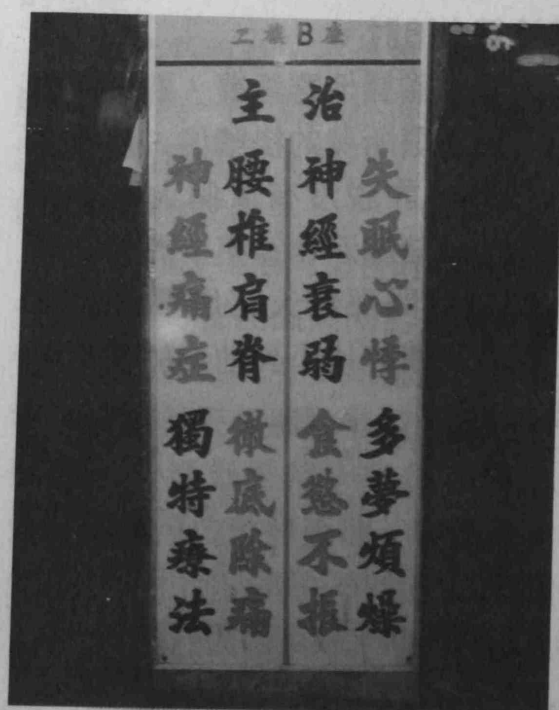 二樓B座
主治
失眠心悸 多夢煩燥
神經衰弱 食慾不振
腰椎肩脊 徹底除痛
神經痛症 獨特療法